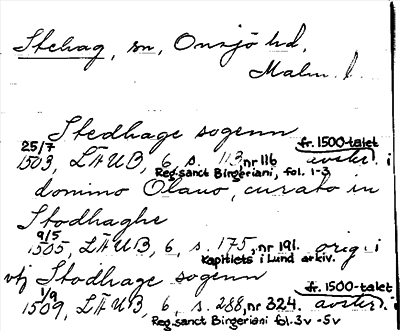 Stehag, sn, Onsjö hd,
Malm. l.
Stedhage sogenn
25/7 fr. 1500-talet
1503, LÄUB, 6, s. 113, nr 116 avskr. i
Reg. sanct Birgeriani, fol. 1-3
domino Olauo, curato in
Stodhaghe
9/5
1505, LÄUB, 6, s. 175, nr 191. orig. i
Kapitlets i Lund arkiv.
vtj Stodhage sogenn
1/9 fr. 1500-talet
1509, LÄUB, 6, s. 288, nr 324. avskr. i
Reg. sanct Birgeriani fol. 3v-5v